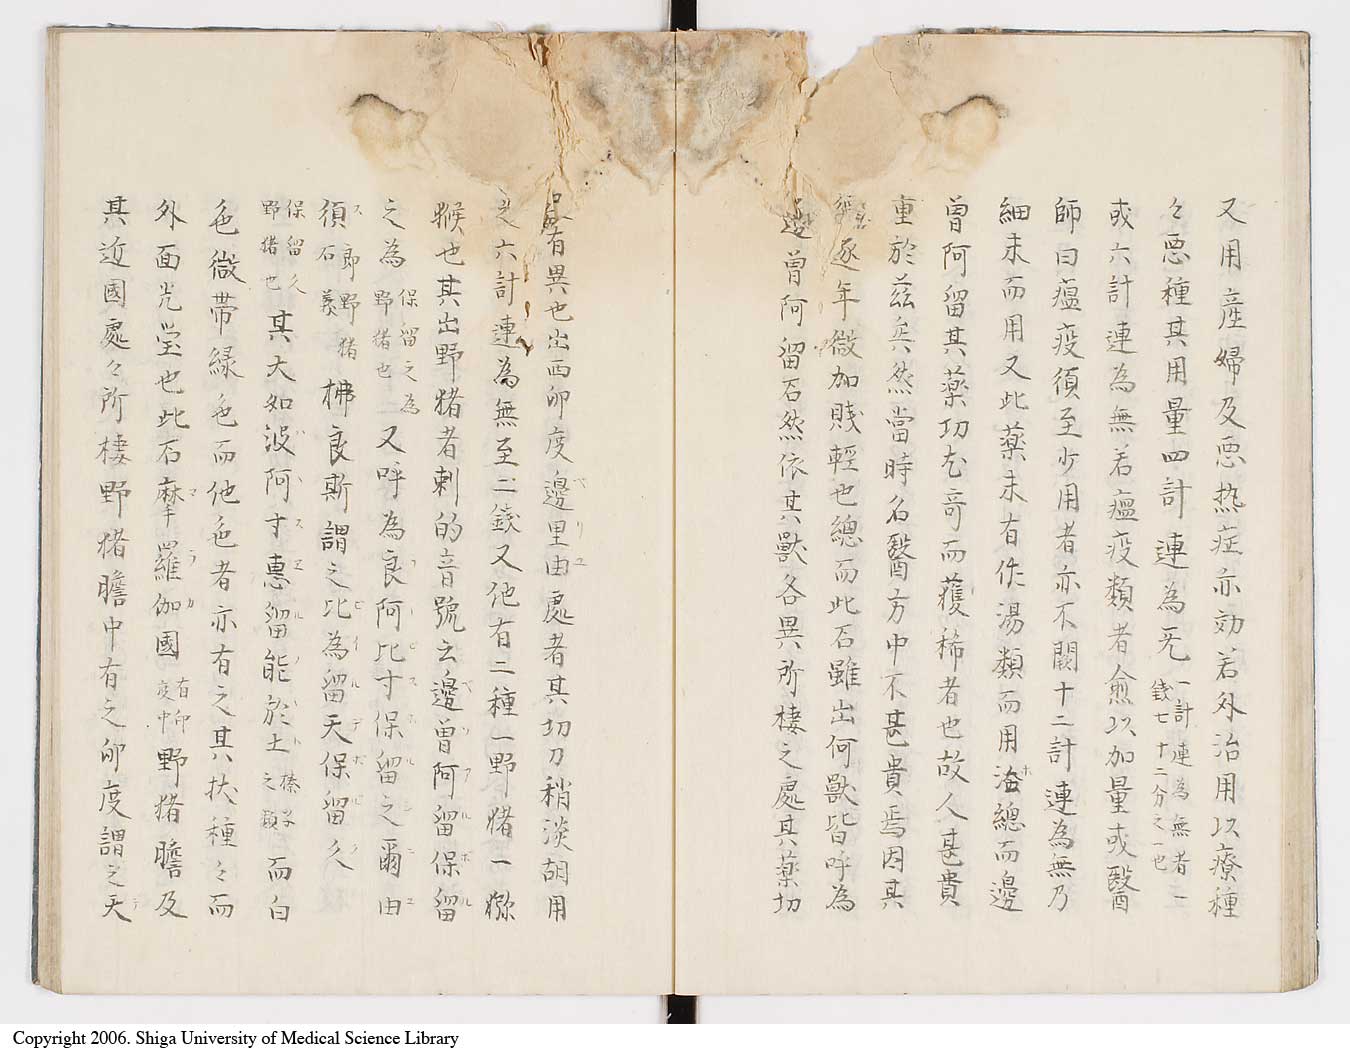 又用産婦及悪热症亦効若外治用以療種
々悪種其用量四計連為无一計連為無者二銭七十二分之一也
或六計連為無若瘟疫類者愈以加量或醫
師曰瘟疫須至少用者亦不闕十二計連為無乃
細末而用又此薬未有作湯類而用總而邊
曽阿留其薬功尤奇而獲稀者也故人甚貴
重於茲矣然當時名醫方中不甚貴焉因其
逐年微加賎軽也總而此石雖出何獣皆呼為
邊曽阿留石然依其獣各異所棲之處其薬切
有異也出西卯度邊里由處者其切乃稍淡胡用
之六計連為無至二銭又他有二種一野猪一獼
ベリユ
猴也其出野猪者刺的音號之邊曽阿留保留
ベソアルホル
之為保留之為野猪也二又呼為良阿比寸保留之爾由
ラーピスホルシニユ
須石郎野猪糞柫良斯謂之比為留天保留久
ス ピイルデボルク
保留久野猪也其大如波阿寸惠留能於土榛子之類而白
ハースエルノート
色微帯緑色而他色者亦有之其状種々而
外面光莹也此石摩羅伽國有印度中野猪膽及
マラカ
其近國處々所棲野猪膽中有之卯度謂之天
テ